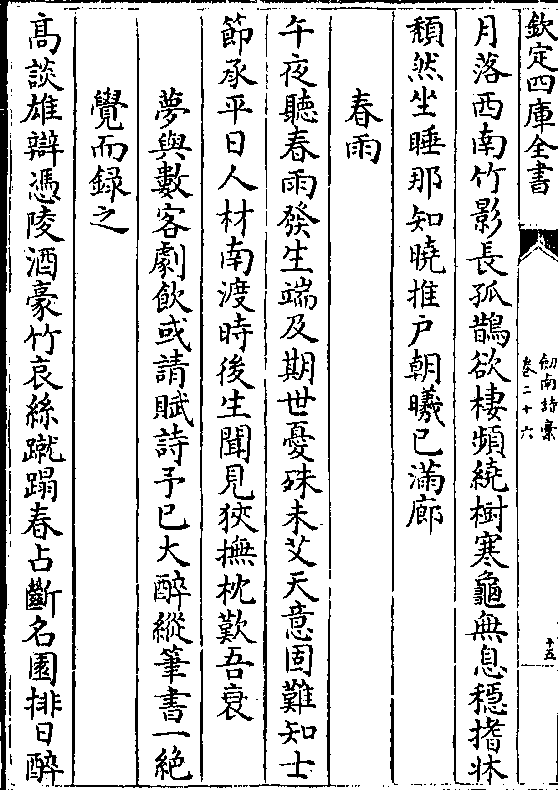 欽定四庫全書
劒南詩稾
卷二十六
十五
月落西南竹影長孤鵲欲棲頻繞樹寒龜無息穩搘牀
頽然坐睡那知曉推户朝曦已滿廊
春雨
午夜聽春雨發生端及期世憂殊未艾天意固難知士
節承平日人材南渡時後生聞見狹撫枕歎吾衰
夢與數客劇飲或請賦詩予已大醉縱筆書一絶
覺而録之
髙談雄辯憑陵酒豪竹哀絲蹴蹋春占斷名園排日醉